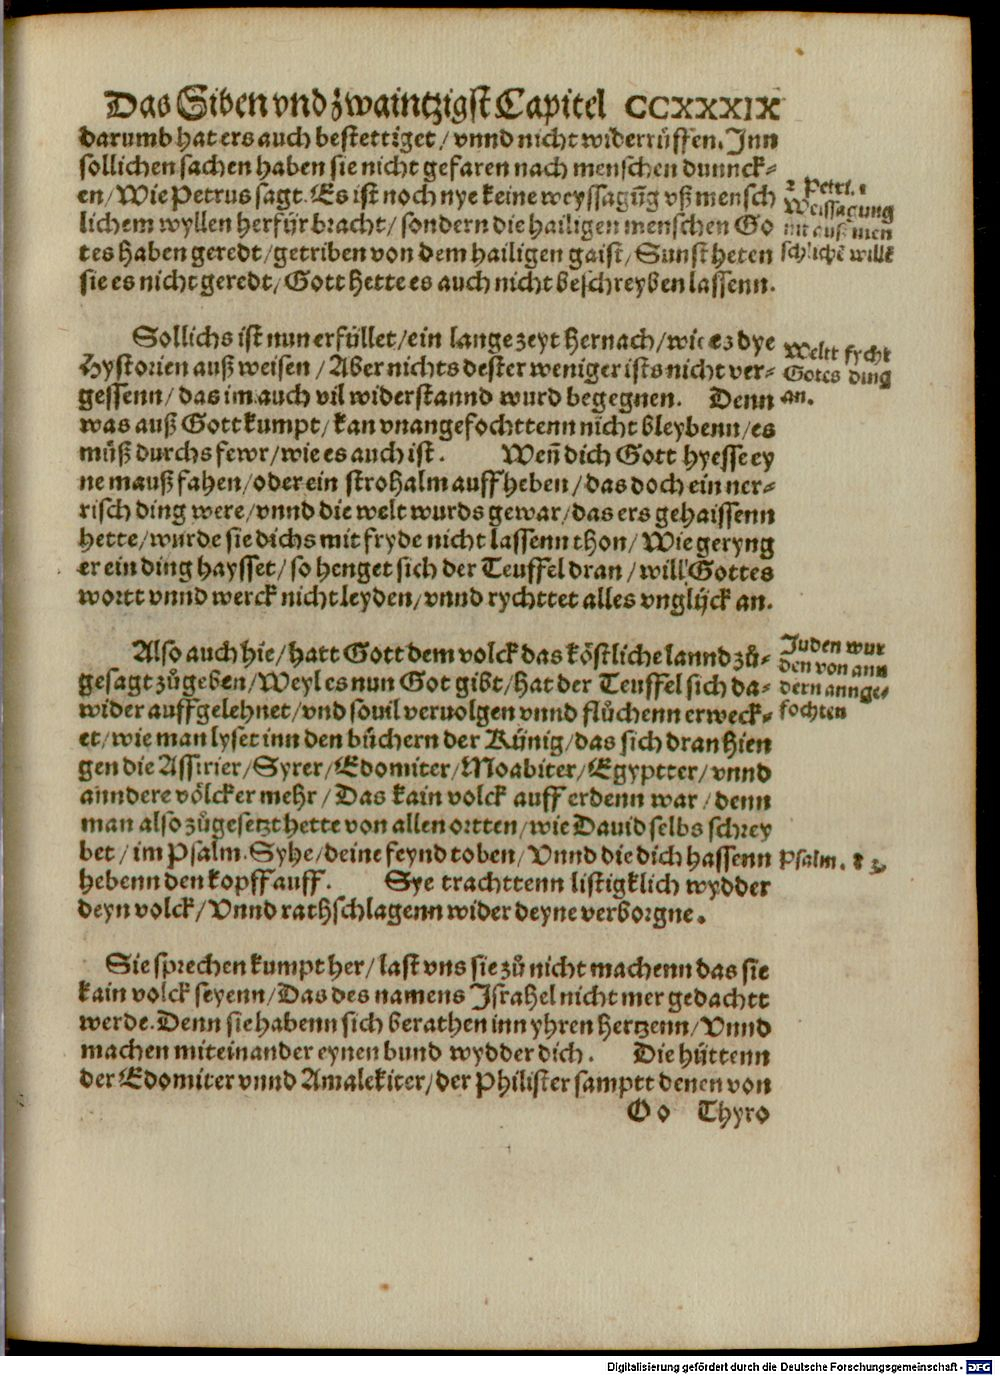 Das Siben vnd zwaintzigst Capitel CCXXXIX
darumb hat ers auch bestettiget / vnnd nicht widerrůffen. Inn
sollichen sachen haben sie nicht gefaren nach menschen dunnck⸗
en / Wie Petrus sagt. Es ist noch nye keine weyssagūg vß mensch
lichem wyllen herfür bracht / sondern die hailigen menschen Go
tes haben geredt / getriben von dem hailigen gaist / Sunst heten
sie es nicht geredt / Gott hette es auch nicht beschreyben lassenn.
2 Petri. 1
Weissagung
nit auß men
schlichē wille
Sollichs ist nun erfüllet / ein lange zeyt hernach / wie es dye
Hystorien auß weisen / Aber nichts dester weniger ists nicht ver⸗
gessenn / das im auch vil widerstannd wurd begegnen. Denn
was auß Gott kumpt / kan vnangefochttenn nicht bleybenn / es
můß durchs fewr / wie es auch ist. Weñ dich Gott hyesse ey
ne mauß fahen / oder ein strohalm auffheben / das doch ein ner⸗
risch ding were / vnnd die welt wurds gewar / das ers gehaissenn
hette / wurde sie dichs mit fryde nicht lassenn thon / Wie geryng
er ein ding haysset / so henget sich der Teuffel dran / will Gottes
wortt vnnd werck nicht leyden / vnnd rychttet alles vnglück an.
Weltt fycht
Gotes ding
an.
Also auch hie / hatt Gott dem volck das köstliche lannd zů⸗
gesagt zůgeben / Weyl es nun Got gibt / hat der Teuffel sich da⸗
wider auffgelehnet / vnd souil veruolgen vnnd flůchenn erweck⸗
et / wie man lyset inn den bůchern der Künig / das sich dran hien
gen die Assirier / Syrer / Edomiter / Moabiter / Egyptter / vnnd
anndere völcker mehr / Das kain volck auff erdenn war / denn
man also zůgesetzt hette von allen ortten / wie Dauid selbs schrey
bet / im Psalm. Syhe / deine feynd toben / Vnnd die dich hassenn
hebenn den kopff auff. Sye trachttenn listigklich wydder
deyn volck / Vnnd rathschlagenn wider deyne verborgne.
Juden wur
den von ann
dern annge⸗
fochten
Psalm. 83
Sie sprechen kumpt her / last vns sie zů nicht machenn das sie
kain volck seyenn / Das des namens Israhel nicht mer gedachtt
werde. Denn sie habenn sich berathen inn yhren hertzenn / Vnnd
machen miteinander eynen bund wydder dich. Die hüttenn
der Edomiter vnnd Amalekiter / der Philister samptt denen von
Oo Thyro
Digitalisierung gefördert durch die Deutsche Forschungsgemeinschaft - DFG